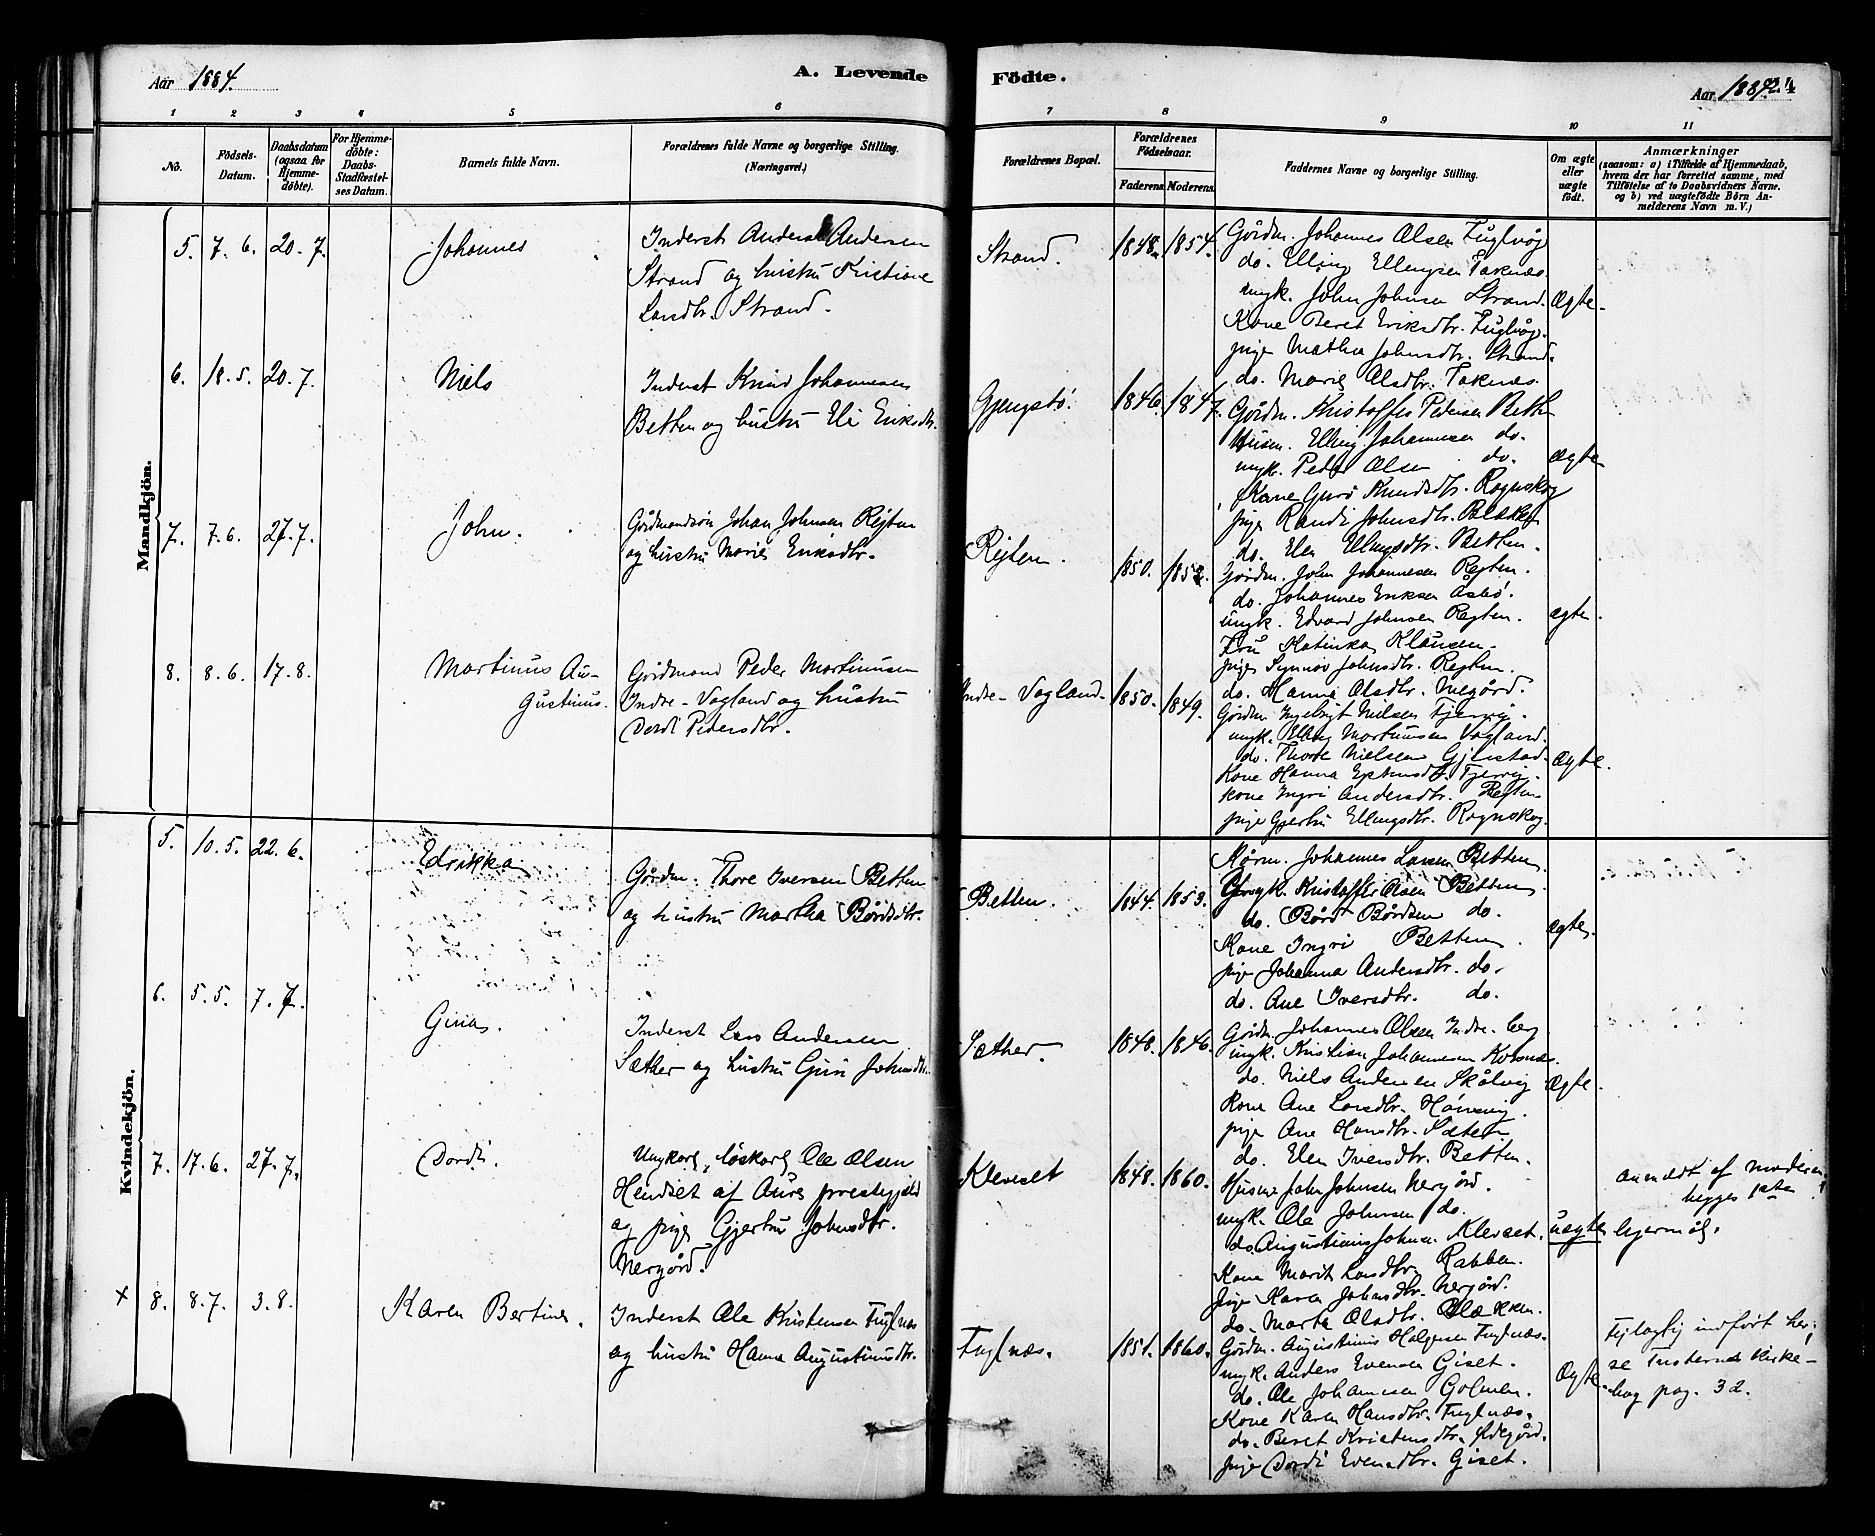 Aar 1884.
A. Levende
Födte.
Aar 1884. 24
1 2 3 4 5 6 7 8 9 10 11
No.
Födsels-Datum.
Daabsdatum (ogsaa for Hjemme-döbte).
For Hjemme-döbte: Daabs-Stadfæstelses Datum.
Barnets fulde Navn.
Forældrenes fulde Navne og borgerlige Stilling. (Næringsvei.)
Forældrenes Bopæl.
Forældrenes Födselsaar.
Faderens. Moderens.
Faddernes Navne og borgerlige Stilling.
Om ægte eller uægte födt.
Anmærkninger
(saasom: a) i Tilfælde af Hjemmedaab, hvem der har forrettet samme, med Tilföielse af to Daabsvidners Navne. og b) ved uægtefödte Börn Anmelderens Navn m. V.)
Mandkjön.
5. 7. 6. 20. 7. Johannes
Inderst Anders Andersen
Strand og hustru Kristiane
Larsdtr. Strand.
Strand. 1848. 1854.
Gårdm. Johannes Olsen Fuglvåg
do. Elling Ellingsen Taknæs.
ungk. John Johnsen Strand.
Kone Beret Eriksdtr. Fuglvåg.
pige Martha Johnsdtr. Strand.
do. Marie Olsdtr. Taknæs.
Ægte.
6. 18. 5. 20. 7. Niels
Inderst Knud Johannesen
Betten og hustru Eli Eriksdtr.
Gjengstö. 1846. 1847.
Gårdm. Kristoffer Pedersen Betten
Husm. Elling Johannesen do.
ungk. Peder Olsen do.
Kone Guro Knudsdtr. Rognskog
pige Randi Johnsdtr. Blækken
do. Elen Ellingsdtr. Betten.
ægte
7. 7. 6. 27. 7. John.
Gårdmandssön Johan Johnsen Rejten
og hustru Marie Eriksdtr.
Rejten. 1850. 1852.
Gårdm. John Johannesen Rejten.
do. Johannes Eriksen Åsbö.
ungk. Edvard Johnsen Rejten.
Fru Katinka Klausen.
pige Synnöv Johnsdtr. Rejten.
do. Hanna Olsdtr. Negård.
ægte.
8. 8. 6. 17. 8. Martinus Au-
gustinus.
Gårdmand Peder Martinusen
Indre-Vogland og hustru
Dordi Pedersdtr.
Indre-Vogland. 1850. 1849.
Gårdm. Ingebrigt Nielsen Fjervig.
ungk. Elling Martinusen Vogland.
do. Thore Nielsen Gjelstad.
Kone Hanna Fjervig.
kone Ingri Andersdtr. Rejten
pige Gjertru Ellingsdtr. Rognskog.
Ægte.
Kvindekjön.
5. 10. 5. 22. 6. Edrikka
Gårdm. Thore Iversen Betten
og hustru Martha Bårdsdtr.
Betten. 1844. 1853.
Johannes Larsen Betten
Ungk. Kristoffer Olsen Betten
do. Bård Bårdsen do.
Kone Ingri Betten.
pige Johanna Andersdtr. do.
do. Ane Iversdtr. do.
ægte.
6. 5. 5. 7. 7. Gina.
Inderst Lars Andersen
Sæther og hustru Guri Johnsdtr.
Sæther. 1848. 1846.
Gårdm. Johannes Olsen Indre-berg
ungk. Kristian Johannesen Korsnæs.
do. Niels Andersen Skålvig
Kone Ane Larsdtr. Hönsvig.
pige Ane Hansdtr. Sæter
do. Elen Iversdtr. Betten.
Ægte.
7. 17. 6. 27. 7. Dordi.
Ungkarl, löskarl, Ole Olsen
Hendset af Aure prestegjeld
og pige Gjertru Johnsdtr.
Nergård.
Klevset 1848. 1860.
Husm. John Johnsen Nergård.
ungk. Ole Johnsen do.
do. Augustinus Johnsen Klevset.
Kone Marit Larsdtr. Rabben.
Pige Karen Johnsdtr. Nergård.
do. Marta Olsdtr. Blækken.
uægte
anmeldt af moderen,
begges 1ste
lejermål.
x 8. 8. 7. 3. 8. Karen Bertine.
Inderst Ole Kristensen Fuglnæs
og hustru Hanna Augustinusdtr.
Fuglnæs. 1851. 1860.
Gårdm. Augustinus Halgesen Fuglnæs.
ungk. Anders Evensen Giset.
do. Ole Johannesen Golmen.
Kone Karen Hansdtr. Fuglnæs.
do. Beret Kristensdtr. Ødegård.
Pige Dordi Evensdtr. Giset.
Ægte.
Fejlagtig indfört her;
se Tusternes kirke-
bog pag. 32.